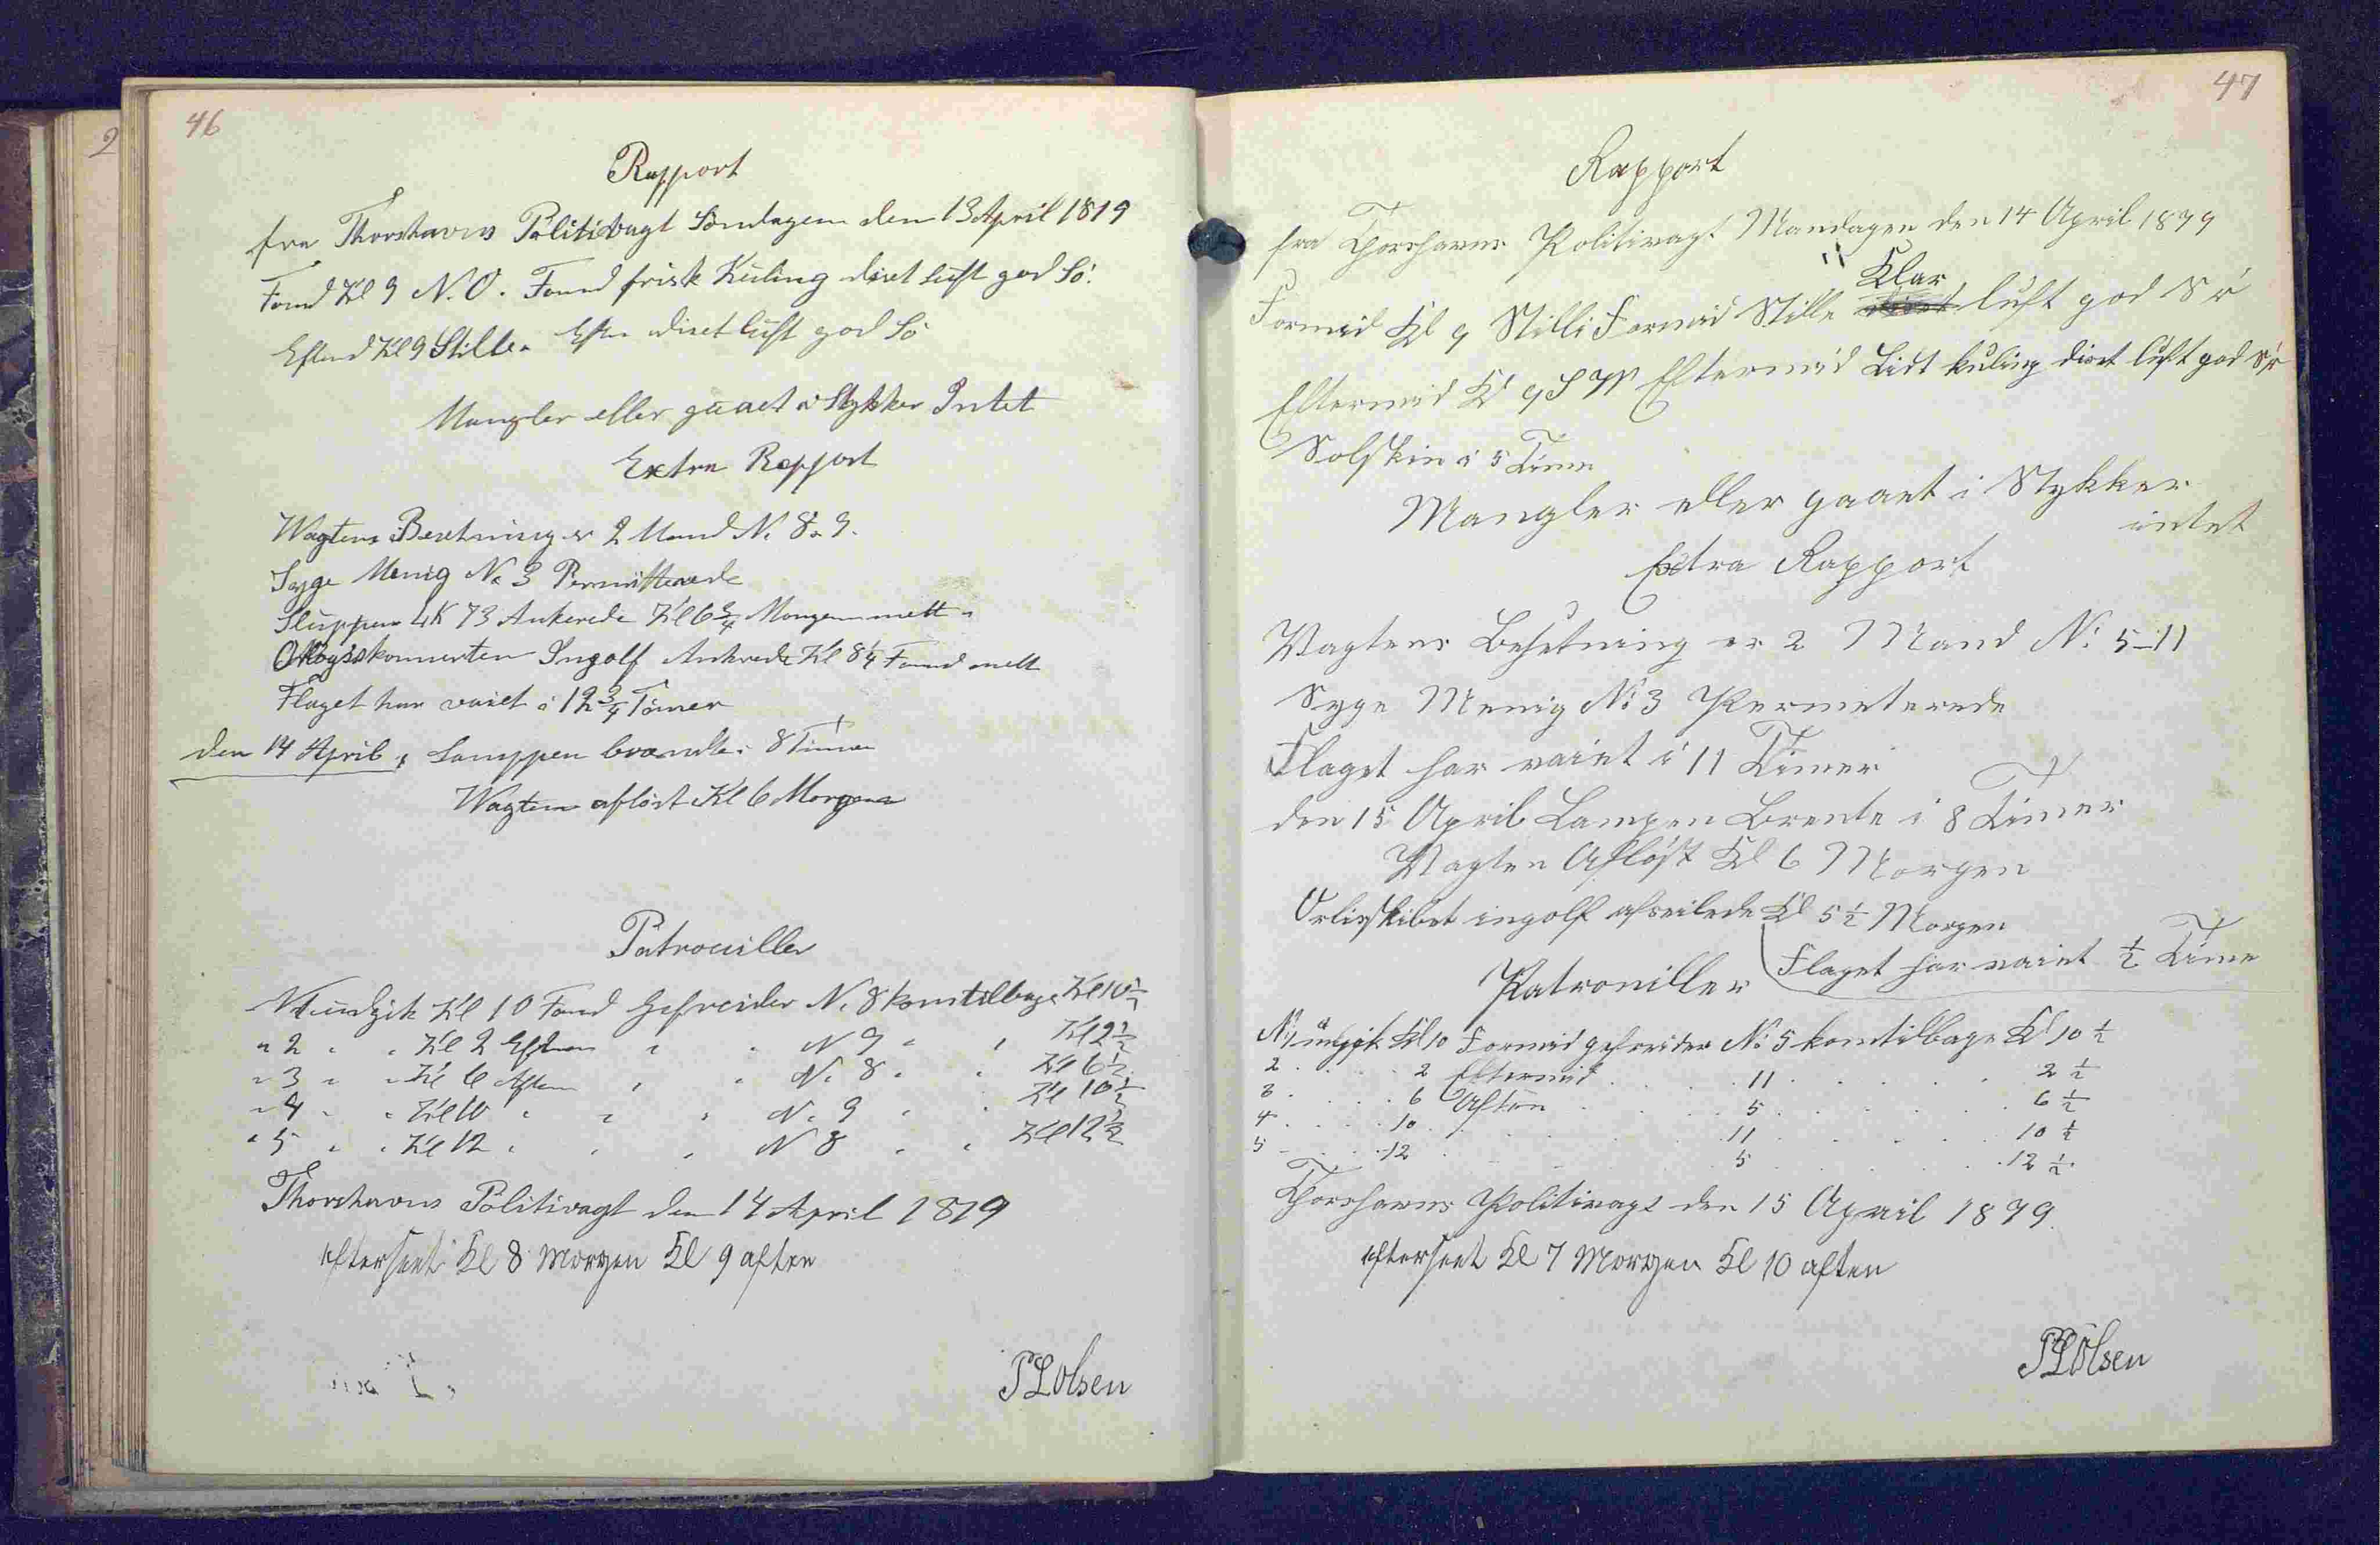 46
Rapport
fra Thorshavns Politivagt Söndagen den 13 April 1879
Formd Kl 9 N. O. Formd frisk Kuling diset luft god Sö.
Eftmd Kl 9 Stille. Eftm diset luft god Sö
Mangler eller gaaet i Stykker Intet
Extra Rapport
Wagtens Besetning er 2 Mand N. 8. 9.
Syge Menig No 3 Permitterede
Sluppen LK 73 Ankerede Kl 6 3/4 Morgen
Ingolf Ankrede Kl 8 1/4 Formd
Flaget har vaiet i 12 3/4 Timer
den 14 April, Lamppen brændte i 8 Timer
Wagten aflöst Kl 6 Morgen
Patrouiller
N1 udgik Kl 10 Formd Gefreider N. 8 kom tilbage Kl 10 1/2
" 2 " " Kl 2 Eftm " " N 9 " " Kl 2 1/2
" 3 " " Kl 6 Aften " " N. 8 " " Kl 6 1/2
" 4 " " Kl 10 " " " N. 9 " " Kl 10 1/2
" 5 " " Kl 12 " " " N 8 " " Kl 12 1/2
Thorshavns Politivagt den 14 April 1879
efterseet Kl 8 Morgen Kl 9 aften
PLOlsen
47
Rapport
fra Thorshavns Politivagt Mandagen den 14 April 1879
Klar
Formid Kl 9 Stille Formid Stille diset luft god Sö
Eftermid Kl 9 S W Eftermid Lidt kuling diset luft god Sö
Solskin i 5 Time
Mangler eller gaaet i Stykker
intet
Extra Rapport
Vagtens Besetning er 2 Mand No 5-11
Syge Menig No 3 Permeterede
Flaget har vaiet i 11 Timer
den 15 April Lampen Brente i 8 Timer
Vagten Aflöst Kl 6 Morgen
Orligskibet ingolf afseilede Kl 5 1/2 Morgen
Flaget har vaiet 1/2 Time
Patrouiller
No 1 udgik Kl 10 Formid gefreider No 5 kom tilbage Kl 10 1/2
2 . . . . 2 Eftermid . . . . 11 . . . . . 2 1/2
3 . . . . 6 Aften . . . . 5 . . . . . 6 1/2
4 . . . . 10 . . . . . 11 . . . . . 10 1/2
5 . . . . 12 . . . . . 5 . . . . . 12 1/2
Thorshavns Politivagt den 15 April 1879.
efterseet Kl 7 Morgen Kl 10 aften
PLOlsen